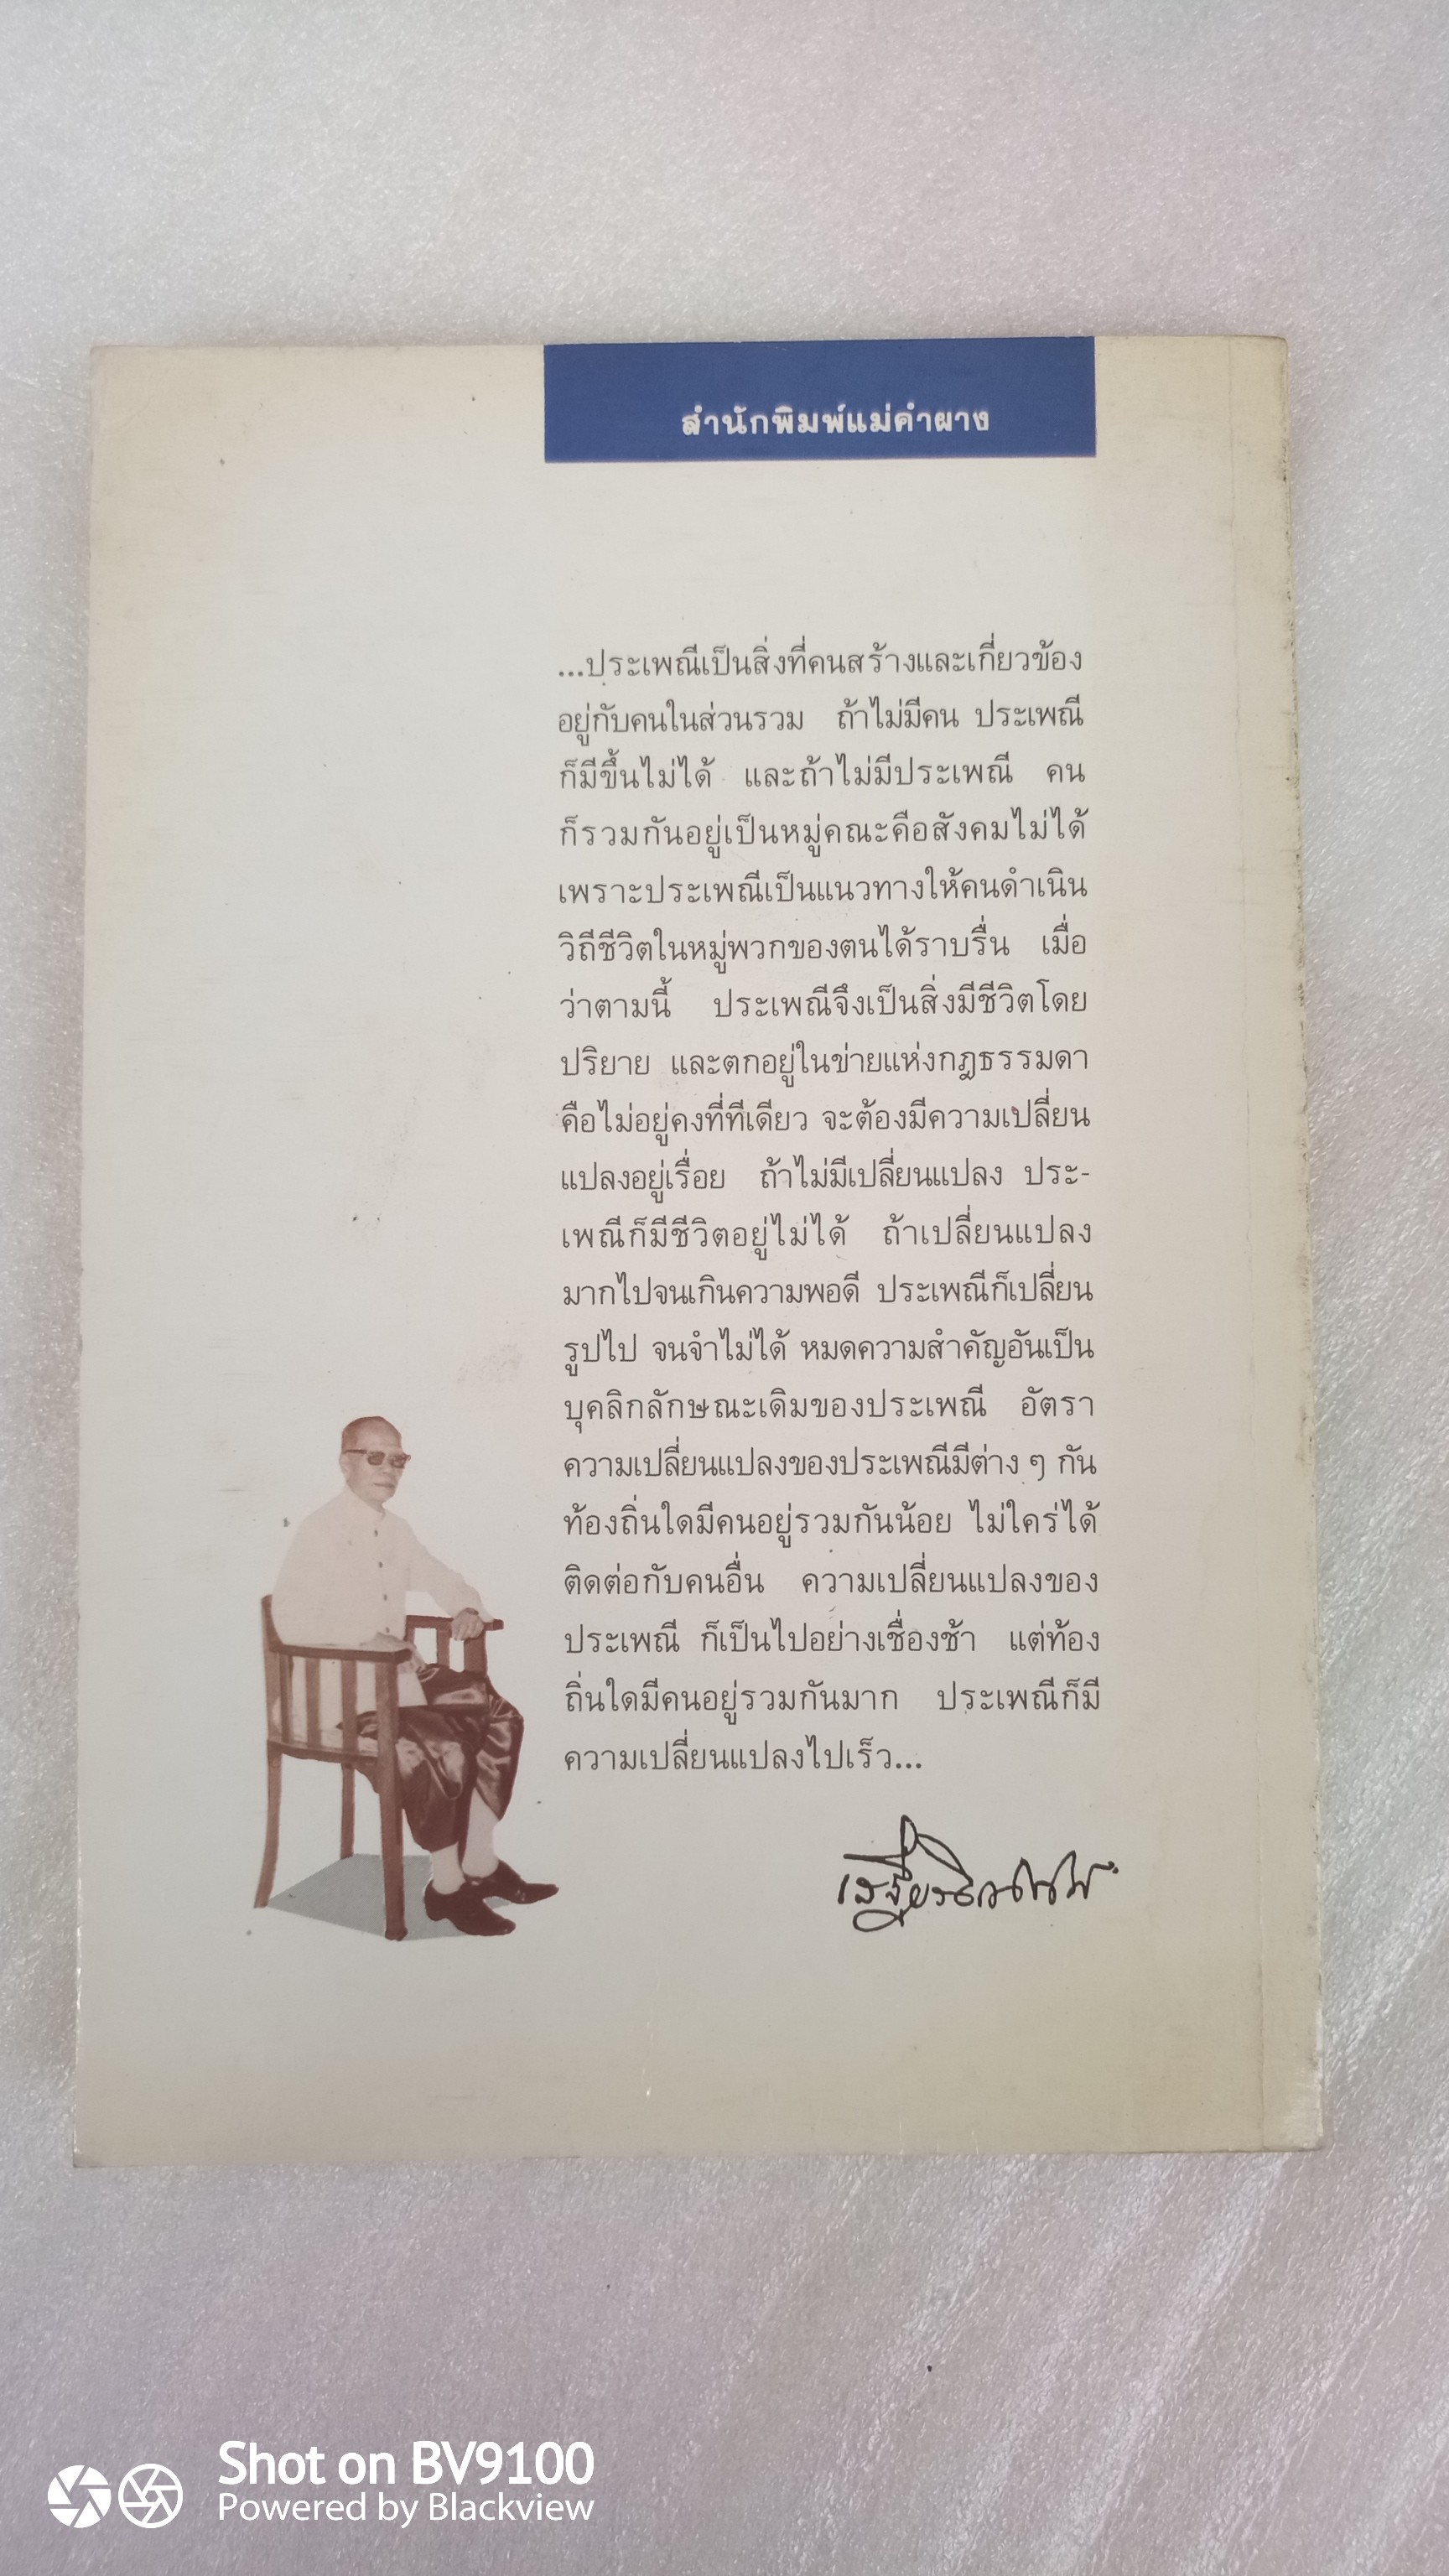 สำนักพิมพ์แม่คำผาง
...ประเพณีเป็นสิ่งที่คนสร้างและเกี่ยวข้อง
อยู่กับคนในส่วนรวม ถ้าไม่มีคน ประเพณี
ก็มีขึ้นไม่ได้ และถ้าไม่มีประเพณี คน
ก็รวมกันอยู่เป็นหมู่คณะคือสังคมไม่ได้
เพราะประเพณีเป็นแนวทางให้คนดำเนิน
วิถีชีวิตในหมู่พวกของตนได้ราบรื่น เมื่อ
ว่าตามนี้ ประเพณีจึงเป็นสิ่งมีชีวิตโดย
ปริยาย และตกอยู่ในข่ายแห่งกฎธรรมดา
คือไม่อยู่คงที่ทีเดียว จะต้องมีความเปลี่ยน
แปลงอยู่เรื่อย ถ้าไม่มีเปลี่ยนแปลง ประ-
เพณีก็มีชีวิตอยู่ไม่ได้ ถ้าเปลี่ยนแปลง
มากไปจนเกินความพอดี ประเพณีก็เปลี่ยน
รูปไป จนจำไม่ได้ หมดความสำคัญอันเป็น
บุคลิกลักษณะเดิมของประเพณี อัตรา
ความเปลี่ยนแปลงของประเพณีมีต่าง ๆ กัน
ท้องถิ่นใดมีคนอยู่รวมกันน้อย ไม่ใคร่ได้
ติดต่อกับคนอื่น ความเปลี่ยนแปลงของ
ประเพณี ก็เป็นไปอย่างเชื่องช้า แต่ท้อง
ถิ่นใดมีคนอยู่รวมกันมาก ประเพณีก็มี
ความเปลี่ยนแปลงไปเร็ว...
Shot on BV9100
Powered by Blackview